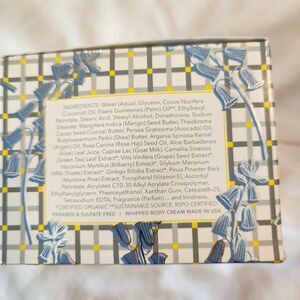 INGREDIENTS: Water (Aqua), Glycerin, Cocos Nucifera
(Coconut) Oil, Elaeis Guineensis (Palm) Oil**, Ethylhexyl
Palmitate, Stearic Acid, Stearyl Alcohol, Dimethicone, Sodium
Stearate, Mangifera Indica (Mango) Seed Butter, Theobroma
Cacao Seed (Cocoa) Butter, Persea Gratissima (Avocado) Oil,
Butyrospermum Parkii (Shea) Butter, Argania Spinosa Kernel
(Argan) Oil, Rosa Canina (Rose Hip) Seed Oil, Aloe Barbadensis
(Aloe) Leaf Juice, Caprae Lac (Goat Milk), Camellia Sinensis
(Green Tea) Leaf Extract*, Vitis Vinifera (Grape) Seed Extract*,
Vaccinium Myrtillus (Bilberry) Extract*, Silybum Marianum
(Milk Thistle) Extract*, Ginkgo Biloba Extract*, Pinus Pinaster Bark
(Maritime Pine) Extract, Tocopherol (Vitamin E), Ascorbyl
Palmitate, Acrylates C10-30 Alkyl Acrylate Crosspolymer,
Ethylhexylglycerin, Phenoxyethanol, Xanthan Gum, Ceteareth-25,
Tetrasodium EDTA, Fragrance (Parfum) ... and kindness.
*CERTIFIED ORGANIC **SUSTAINABLE SOURCE. RSPO CERTIFIED
PARABEN & SULFATE FREE | WHIPPED BODY CREAM MADE IN USA